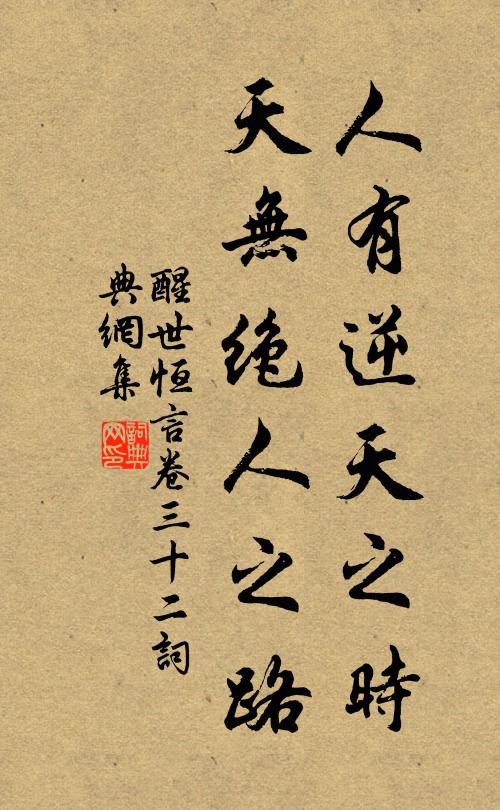 人有逆天之時
天無絕人之路
醒世恒言卷三十二詞
典網集
詞典
网印